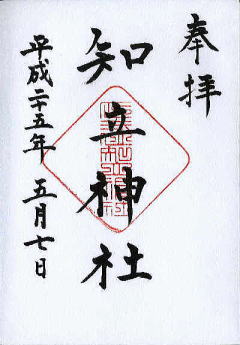 奉拝
知立神社
平成二十五年 五月七日